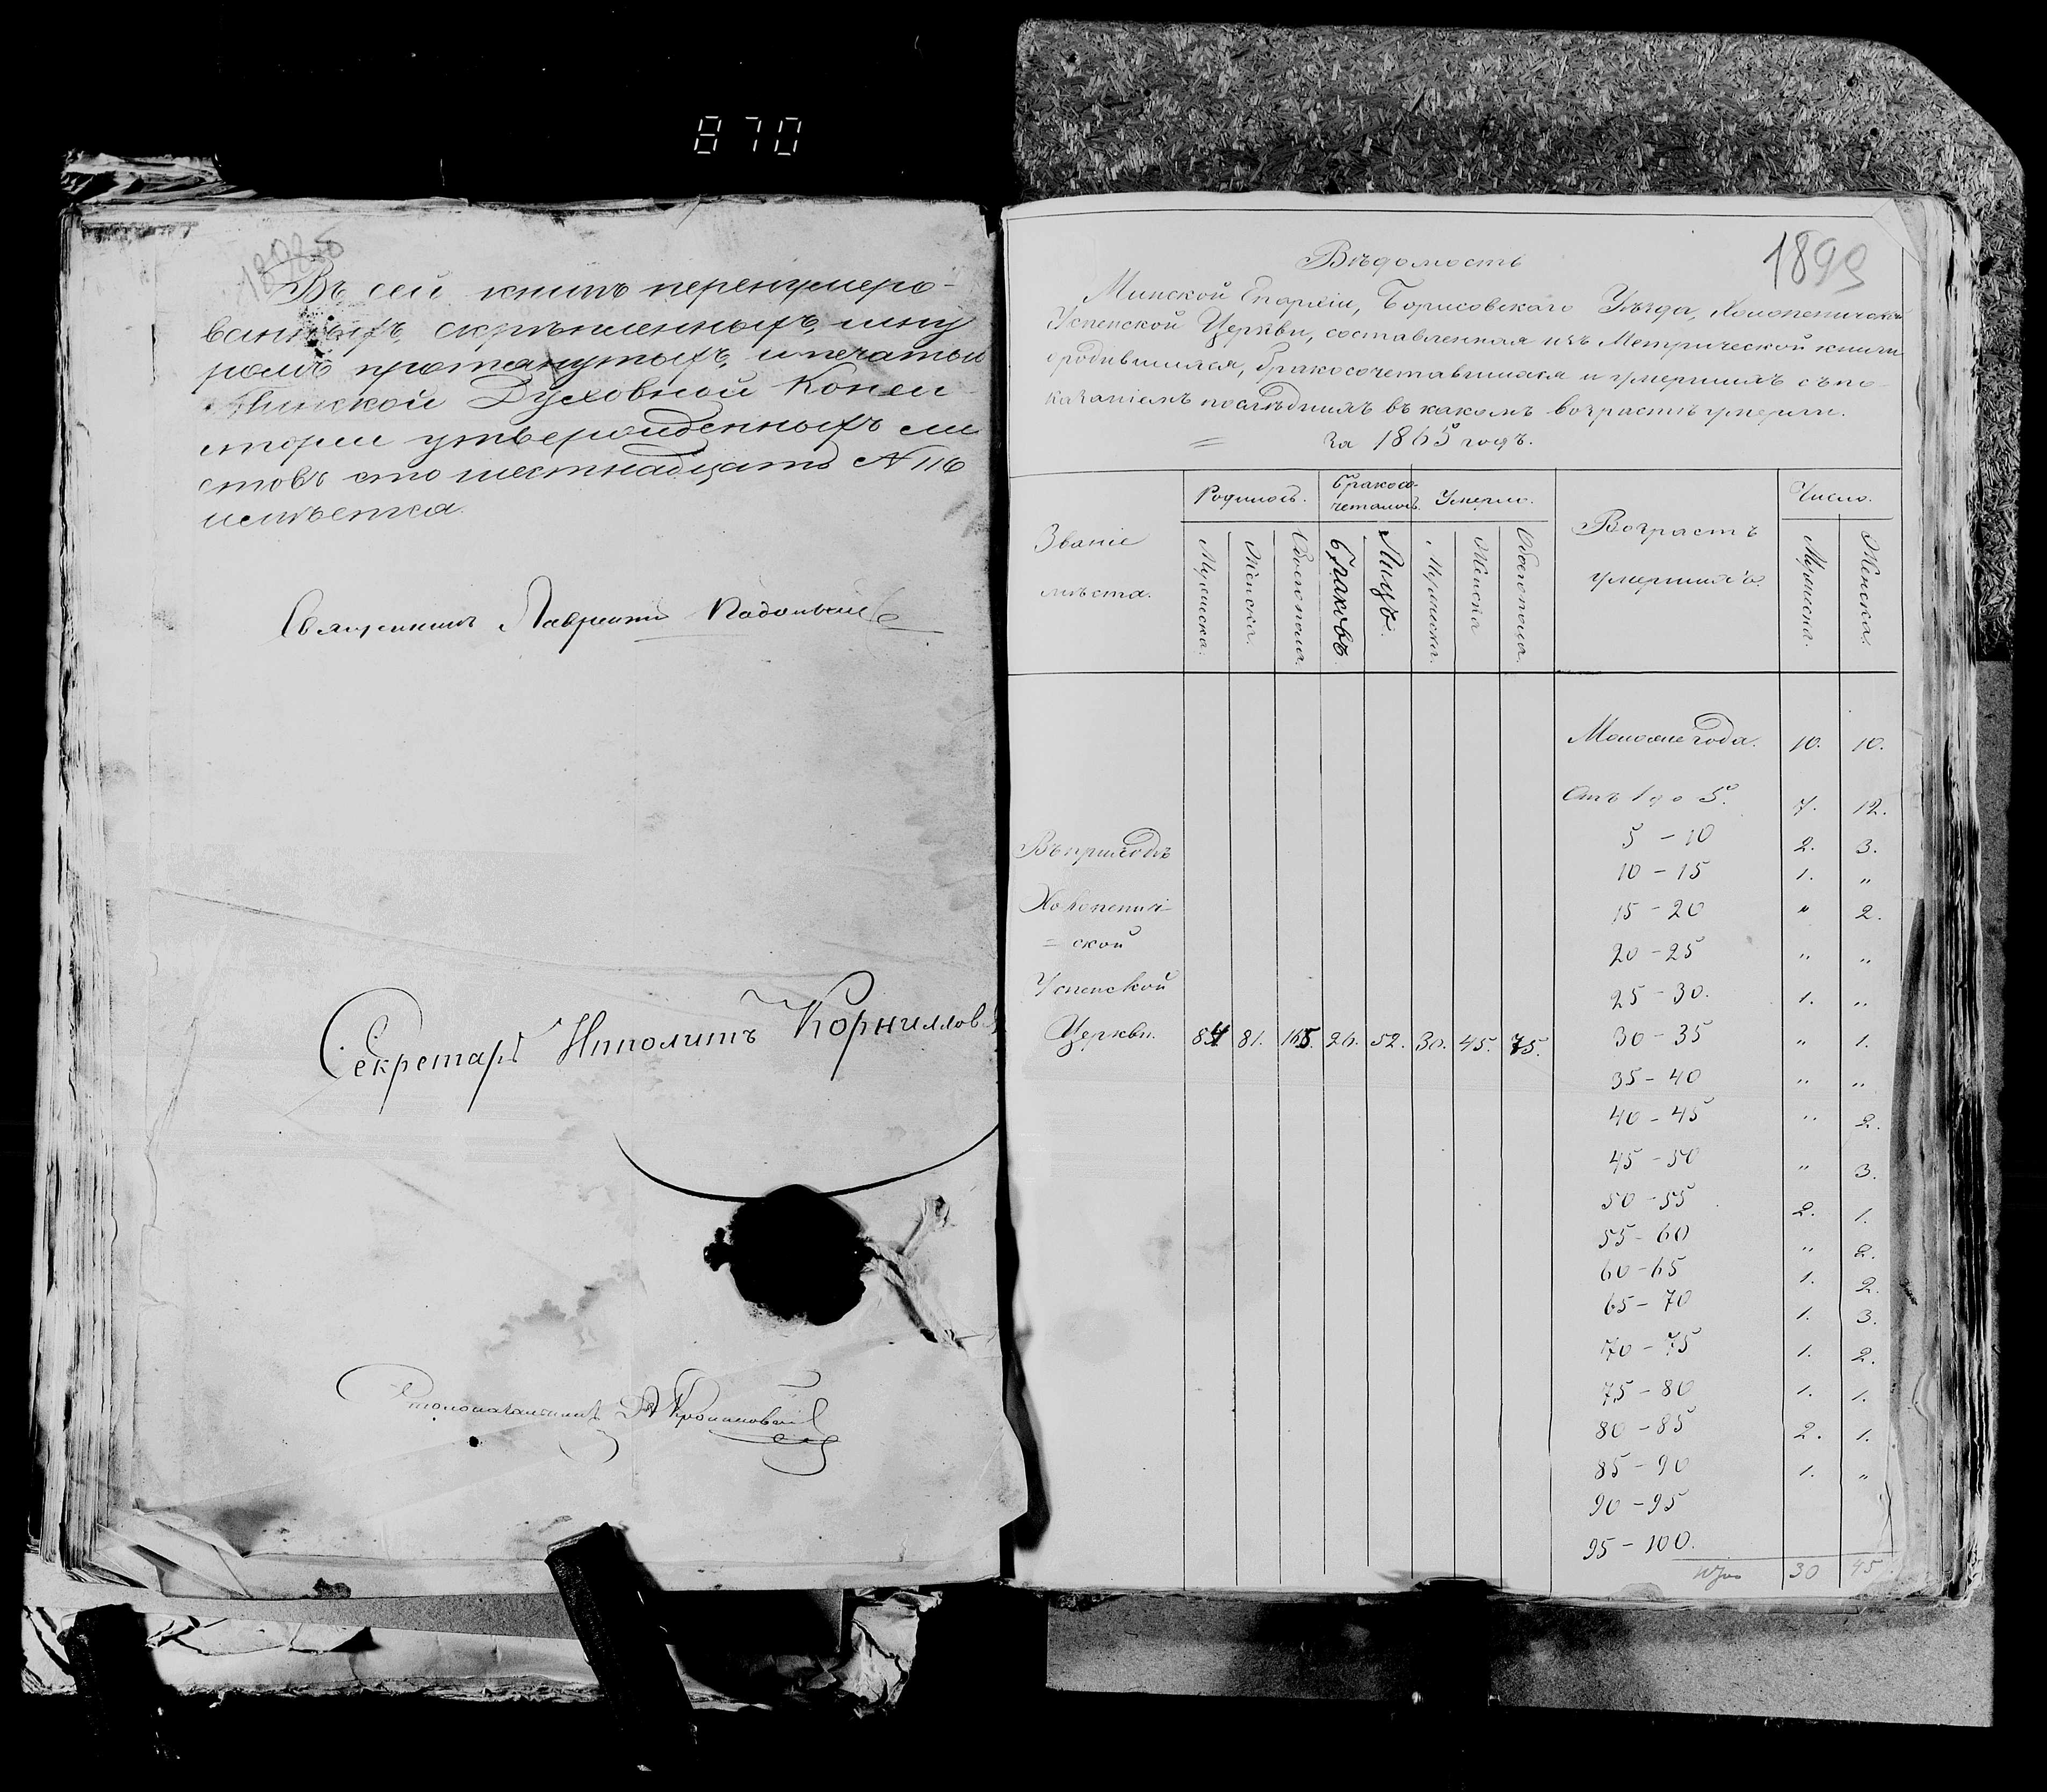 870
Въ сей книгѣ перенумеро-
ванныхъ, скрѣпленныхъ, шну
ромъ протянутыхъ, и печатью
Минской Духовной Конси
сторіи утвержденныхъ ли
стовъ сто шестнадцать N 116
имѣется.
Священникъ Лаврентій
Секретарь Иполитъ Корниллов
Столоначальникъ
1899
Вѣдомость
Минской Епархіи, Борисовскаго Уѣзда, Холопеничской
Успенской Церкви, составленная изъ Метрической книги
о родившихся, бракосочетавшихся и умершихъ съ по-
казаніемъ послѣднихъ въ какомъ возрастѣ умерли.
= За 1865 годъ.
Званіе
мѣста.
Родилось.
Бракосо-
четалось.
Умерло.
Возрастъ
умершихъ.
Число.
Мужска.
Женска.
Обоегопола.
Браковъ.
Лицъ.
Мужска.
Женска
Обоегопола.
Мужска.
Женска.
Моложе года. 10. 10.
Отъ 1 до 5. 7. 12.
5 - 10 2. 3.
10 - 15 1. „
15 - 20 „ 2.
20 - 25 „ „
25 - 30. 1. „
30 - 35 „ 1.
35 - 40 „ „
40 - 45 „ 2.
45 - 50 „ 3.
50 - 55 2. 1.
55 - 60 „ 2.
60 - 65 1. 2.
65 - 70 1. 3.
70 - 75 1. 2.
75 - 80 1. 1.
80 - 85 2. 1.
85 - 90 1. „
90 - 95
95 - 100.
30 45
Въ приходѣ
Холопенич
= ской
Успенской
Церкви. 84 81. 165. 26. 52. 30. 45. 75.